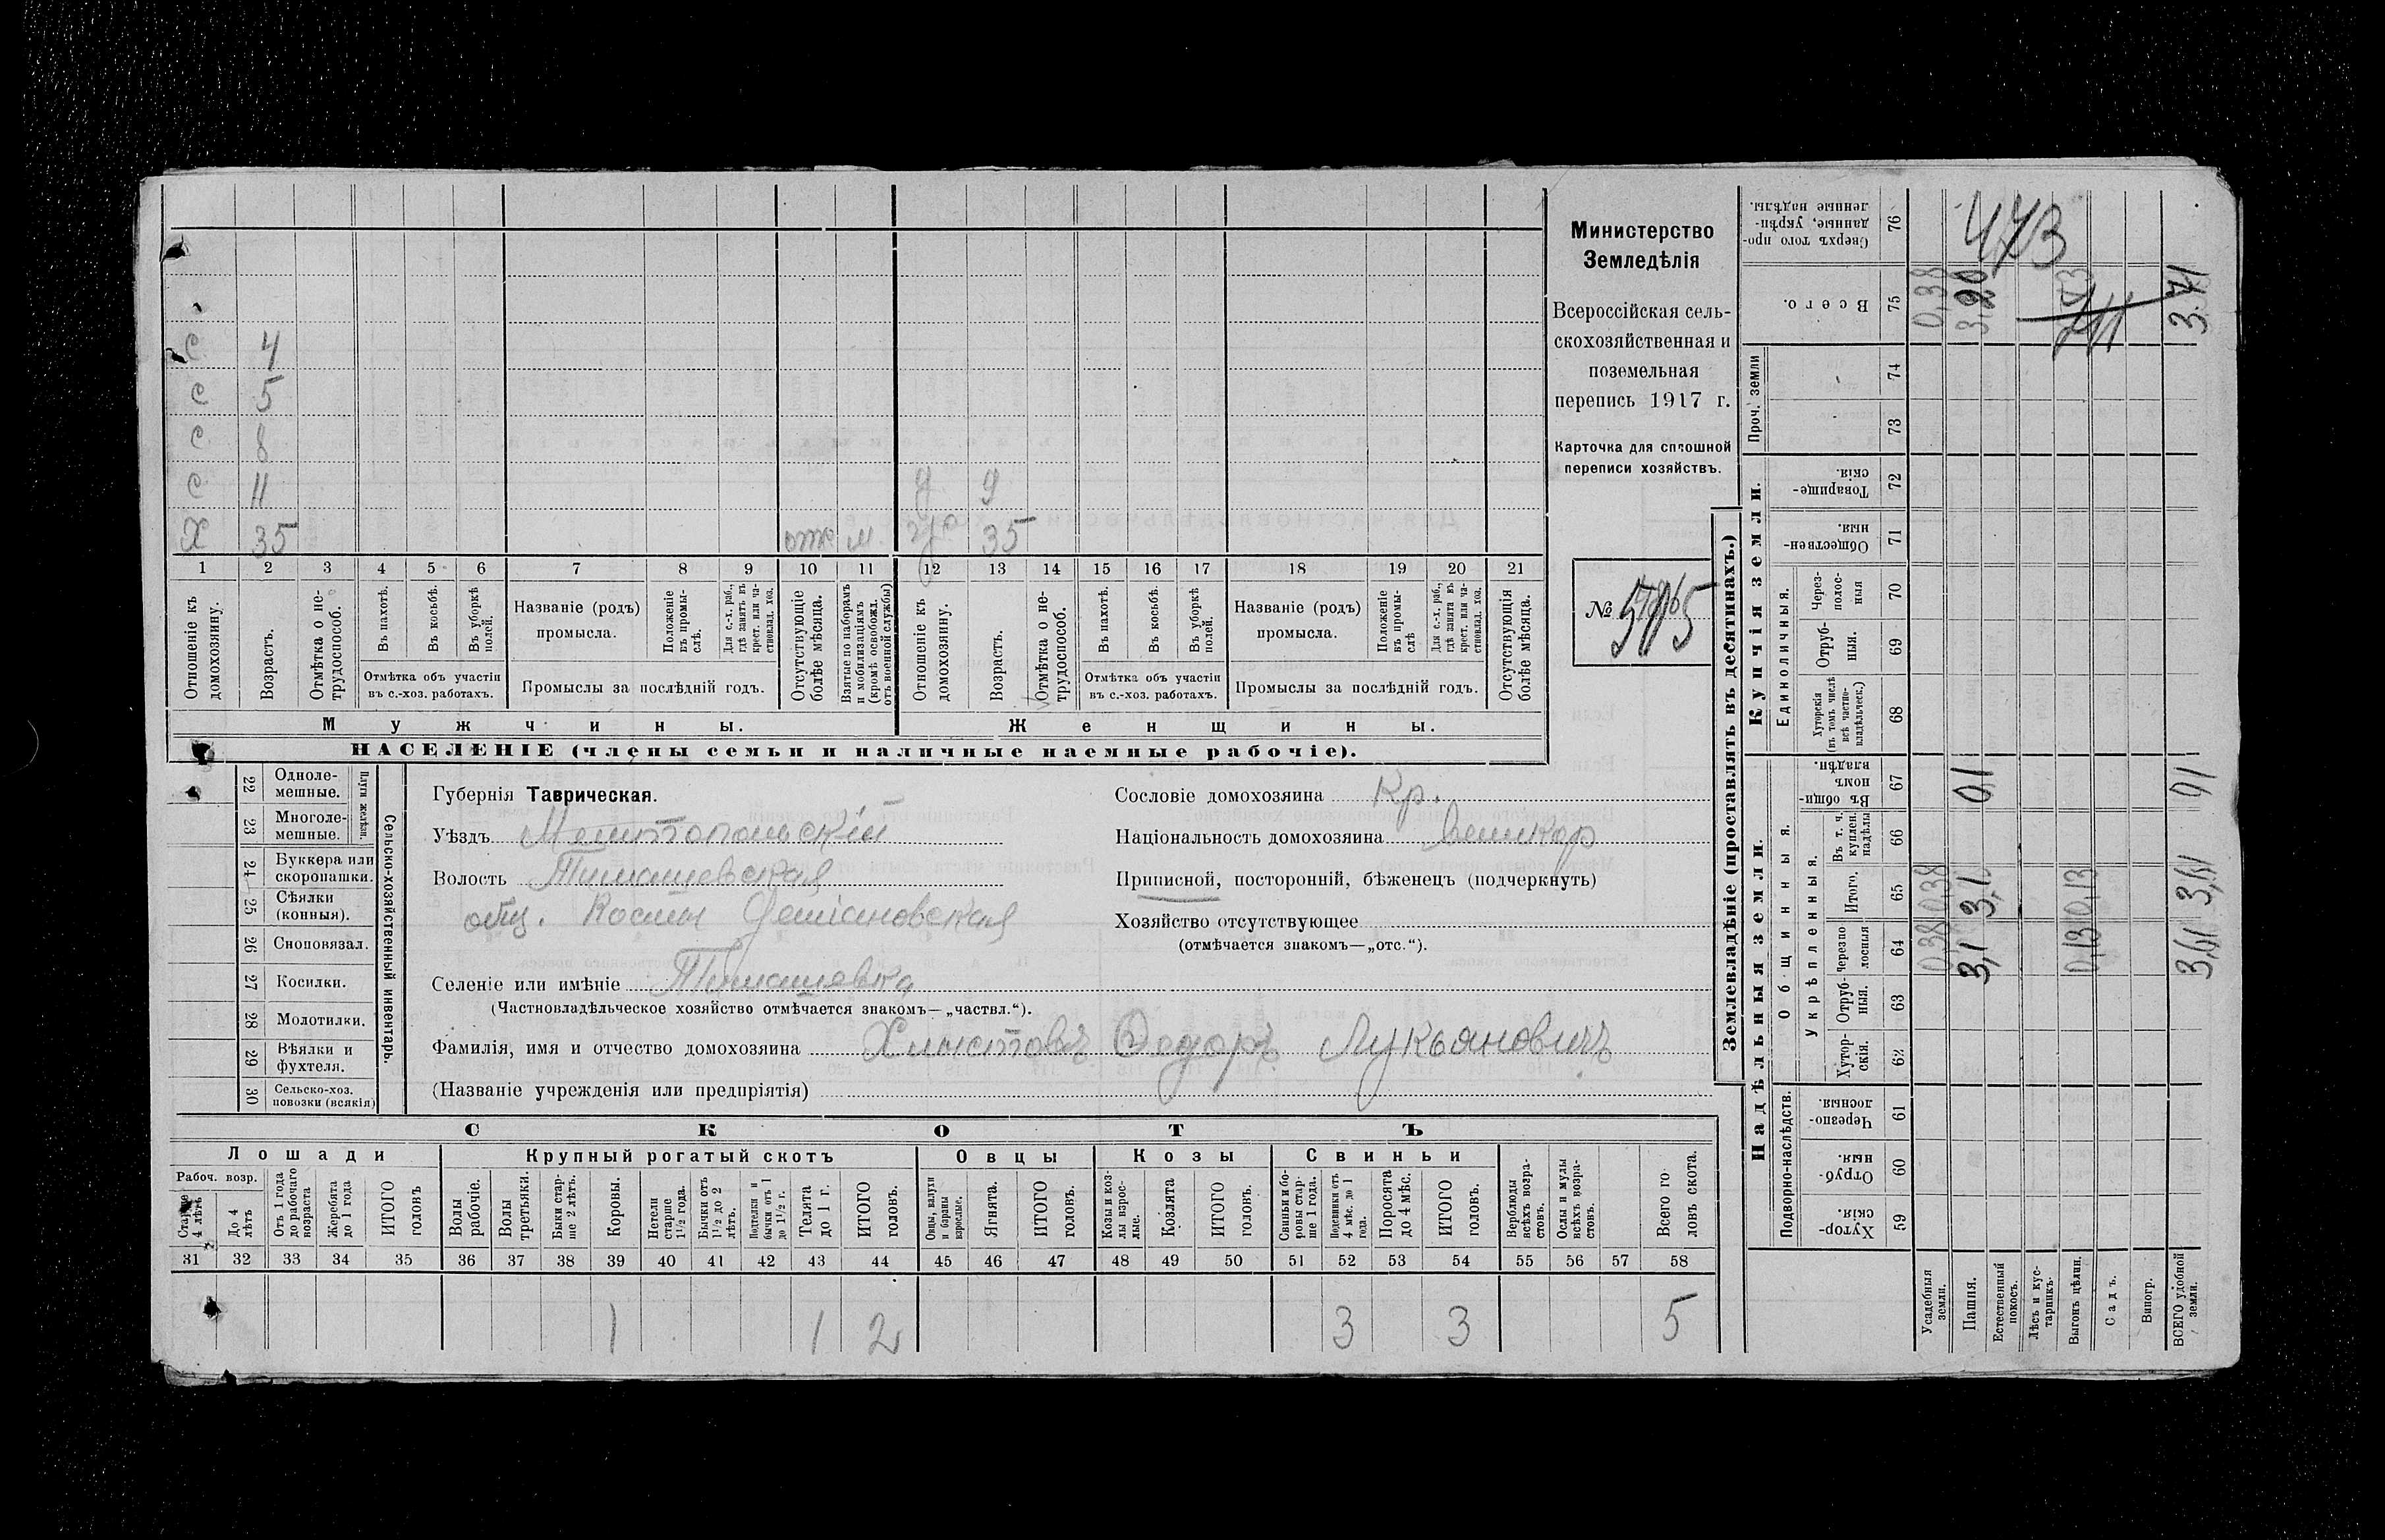 С 4
С 5
С 8
С 11 д 9
Х 35 отс м 35
1 2 3 4 5 6 7 8 9 10 11 12 13 14 15 16 17 18 19 20 21
Отношеніе къ домохозяину.
Возрастъ.
Отмѣтка о не-
трудоспособ.
Въ пахотѣ.
Въ косьбѣ.
Въ уборкѣ
полей.
Отмѣтка объ участіи
въ с.-хоз. работахъ.
Названіе (родъ)
промысла.
Положеніе
въ промы-
слѣ.
Для с.-х. раб.,
гдѣ занятъ въ
крест. или ча-
стновлад. хоз.
Промыслы за послѣдній годъ.
Отсутствующіе
болѣе мѣсяца.
Взятые по наборамъ
и мобилизаціямъ
(кромѣ освобожд.
отъ военной службы)
Отношеніе къ
домохозяину.
Возрастъ.
Отмѣтка о не-
трудоспособ.
Въ пахотѣ.
Въ косьбѣ.
Въ уборкѣ
полей.
Отмѣтка объ участіи
въ с.-хоз. работахъ.
Названіе (родъ)
промысла.
Положеніе
въ промы-
слѣ
Для с.-х. раб.,
гдѣ занята въ
крест. или ча-
стновлад. хоз.
Промыслы за послѣдній годъ.
Отсутствующія
болѣе мѣсяца.
Мужчины.
Женщины.
НАСЕЛЕНІЕ (члены семьи и наличные наемные рабочіе).
Министерство
Земледѣлія
Всероссійская сель-
скохозяйственная и
поземельная
перепись 1917 г.
Карточка для сплошной
переписи хозяйствъ.
№
22 Одноле-
мешные.
23 Многоле-
мешные.
Плуги желѣзн.
24 Буккера или
скоропашки.
25 Сѣялки
(конныя).
26 Сноповязал.
27 Косилки.
28 Молотилки.
29 Вѣялки и
фухтеля.
30 Сельско-хоз.
повозки (всякія)
Сельско-хозяйственный инвентарь.
Губернія Таврическая.
Уѣздъ Мелитопольскій
Волость Тимашевская
общ. Косма Деміановская
Селеніе или имѣніе Тимашевка
(Частновладѣльческое хозяйство отмѣчается знакомъ—„частвл.“).
Фамилія, имя и отчество домохозяина Хлыстовъ Федоръ Лукьяновичъ
(Названіе учрежденія или предпріятія)
Сословіе домохозяина Кр.
Національность домохозяина великор
Приписной, посторонній, бѣженецъ (подчеркнуть)
Хозяйство отсутствующее
(отмѣчается знакомъ—„отс.“).
СКОТЪ
Лошади
Крупный рогатый скотъ
Овцы
Козы
Свиньи
Рабоч. возр.
Старше
4 лѣтъ
До 4
лѣтъ
Отъ 1 года
до рабочаго
возраста
Жеребята
до 1 года
ИТОГО
головъ
Волы
рабочіе.
Волы
третьяки.
Быки стар-
ше 2 лѣтъ.
Коровы.
Нетели
старше
1½ года.
Бычки отъ
1½ до 2
лѣтъ.
Подтелки и
бычки отъ 1
до 1½ г.
Телята
до 1 г.
ИТОГО
головъ.
Овцы, валухи
и бараны
взрослые.
Ягнята.
ИТОГО
головъ.
Козы и коз-
лы взрос-
лые.
Козлята
ИТОГО
головъ.
Свиньи и бо-
ровы стар-
ше 1 года.
Подсвинки отъ
4 мѣс. до 1
года.
Поросята
до 4 мѣс.
ИТОГО
головъ.
Верблюды
всѣхъ возра-
стовъ.
Ослы и мулы
всѣхъ возра-
стовъ.
Всего го
ловъ скота.
31 32 33 34 35 36 37 38 39 40 41 42 43 44 45 46 47 48 49 50 51 52 53 54 55 56 57 58
1 1 2 3 3 5
Землевладѣніе (проставлять въ десятинахъ.)
Сверхъ того про-
данные, укрѣп-
ленные надѣлы.
76
473
Всего.
75
0,38 3,20 3.71
Проч. земли
74
73
Купчія земли.
Товарище-
скія.
72
Обществен-
ныя.
71
Единоличныя.
Через-
полос-
ныя
70
Отруб-
ныя.
69
Хуторскія
(въ томъ числѣ
всѣ частно-
владѣльческ.)
68
Надѣльныя земли.
Общинныя.
Въ общи-
номъ
владѣн.
67
01 01
Укрѣпленныя.
Въ т. ч.
куплен.
надѣлы
66
Итого.
65
0,38 3,1 0,13 3,61
Черезпо
лосныя
64
0,38 3,1 0,13 3,61
Отруб-
ныя.
63
Хутор-
скія.
62
Подворно-наслѣдств.
Черезпо-
лосныя.
61
Отруб-
ныя.
60
Хутор-
скія.
59
Усадебныя
земли.
Пашня.
Естественный
покосъ.
Лѣсъ и кус-
тарникъ.
Выгонъ цѣлин.
Садъ.
Виногр.
ВСЕГО удобной
земли.